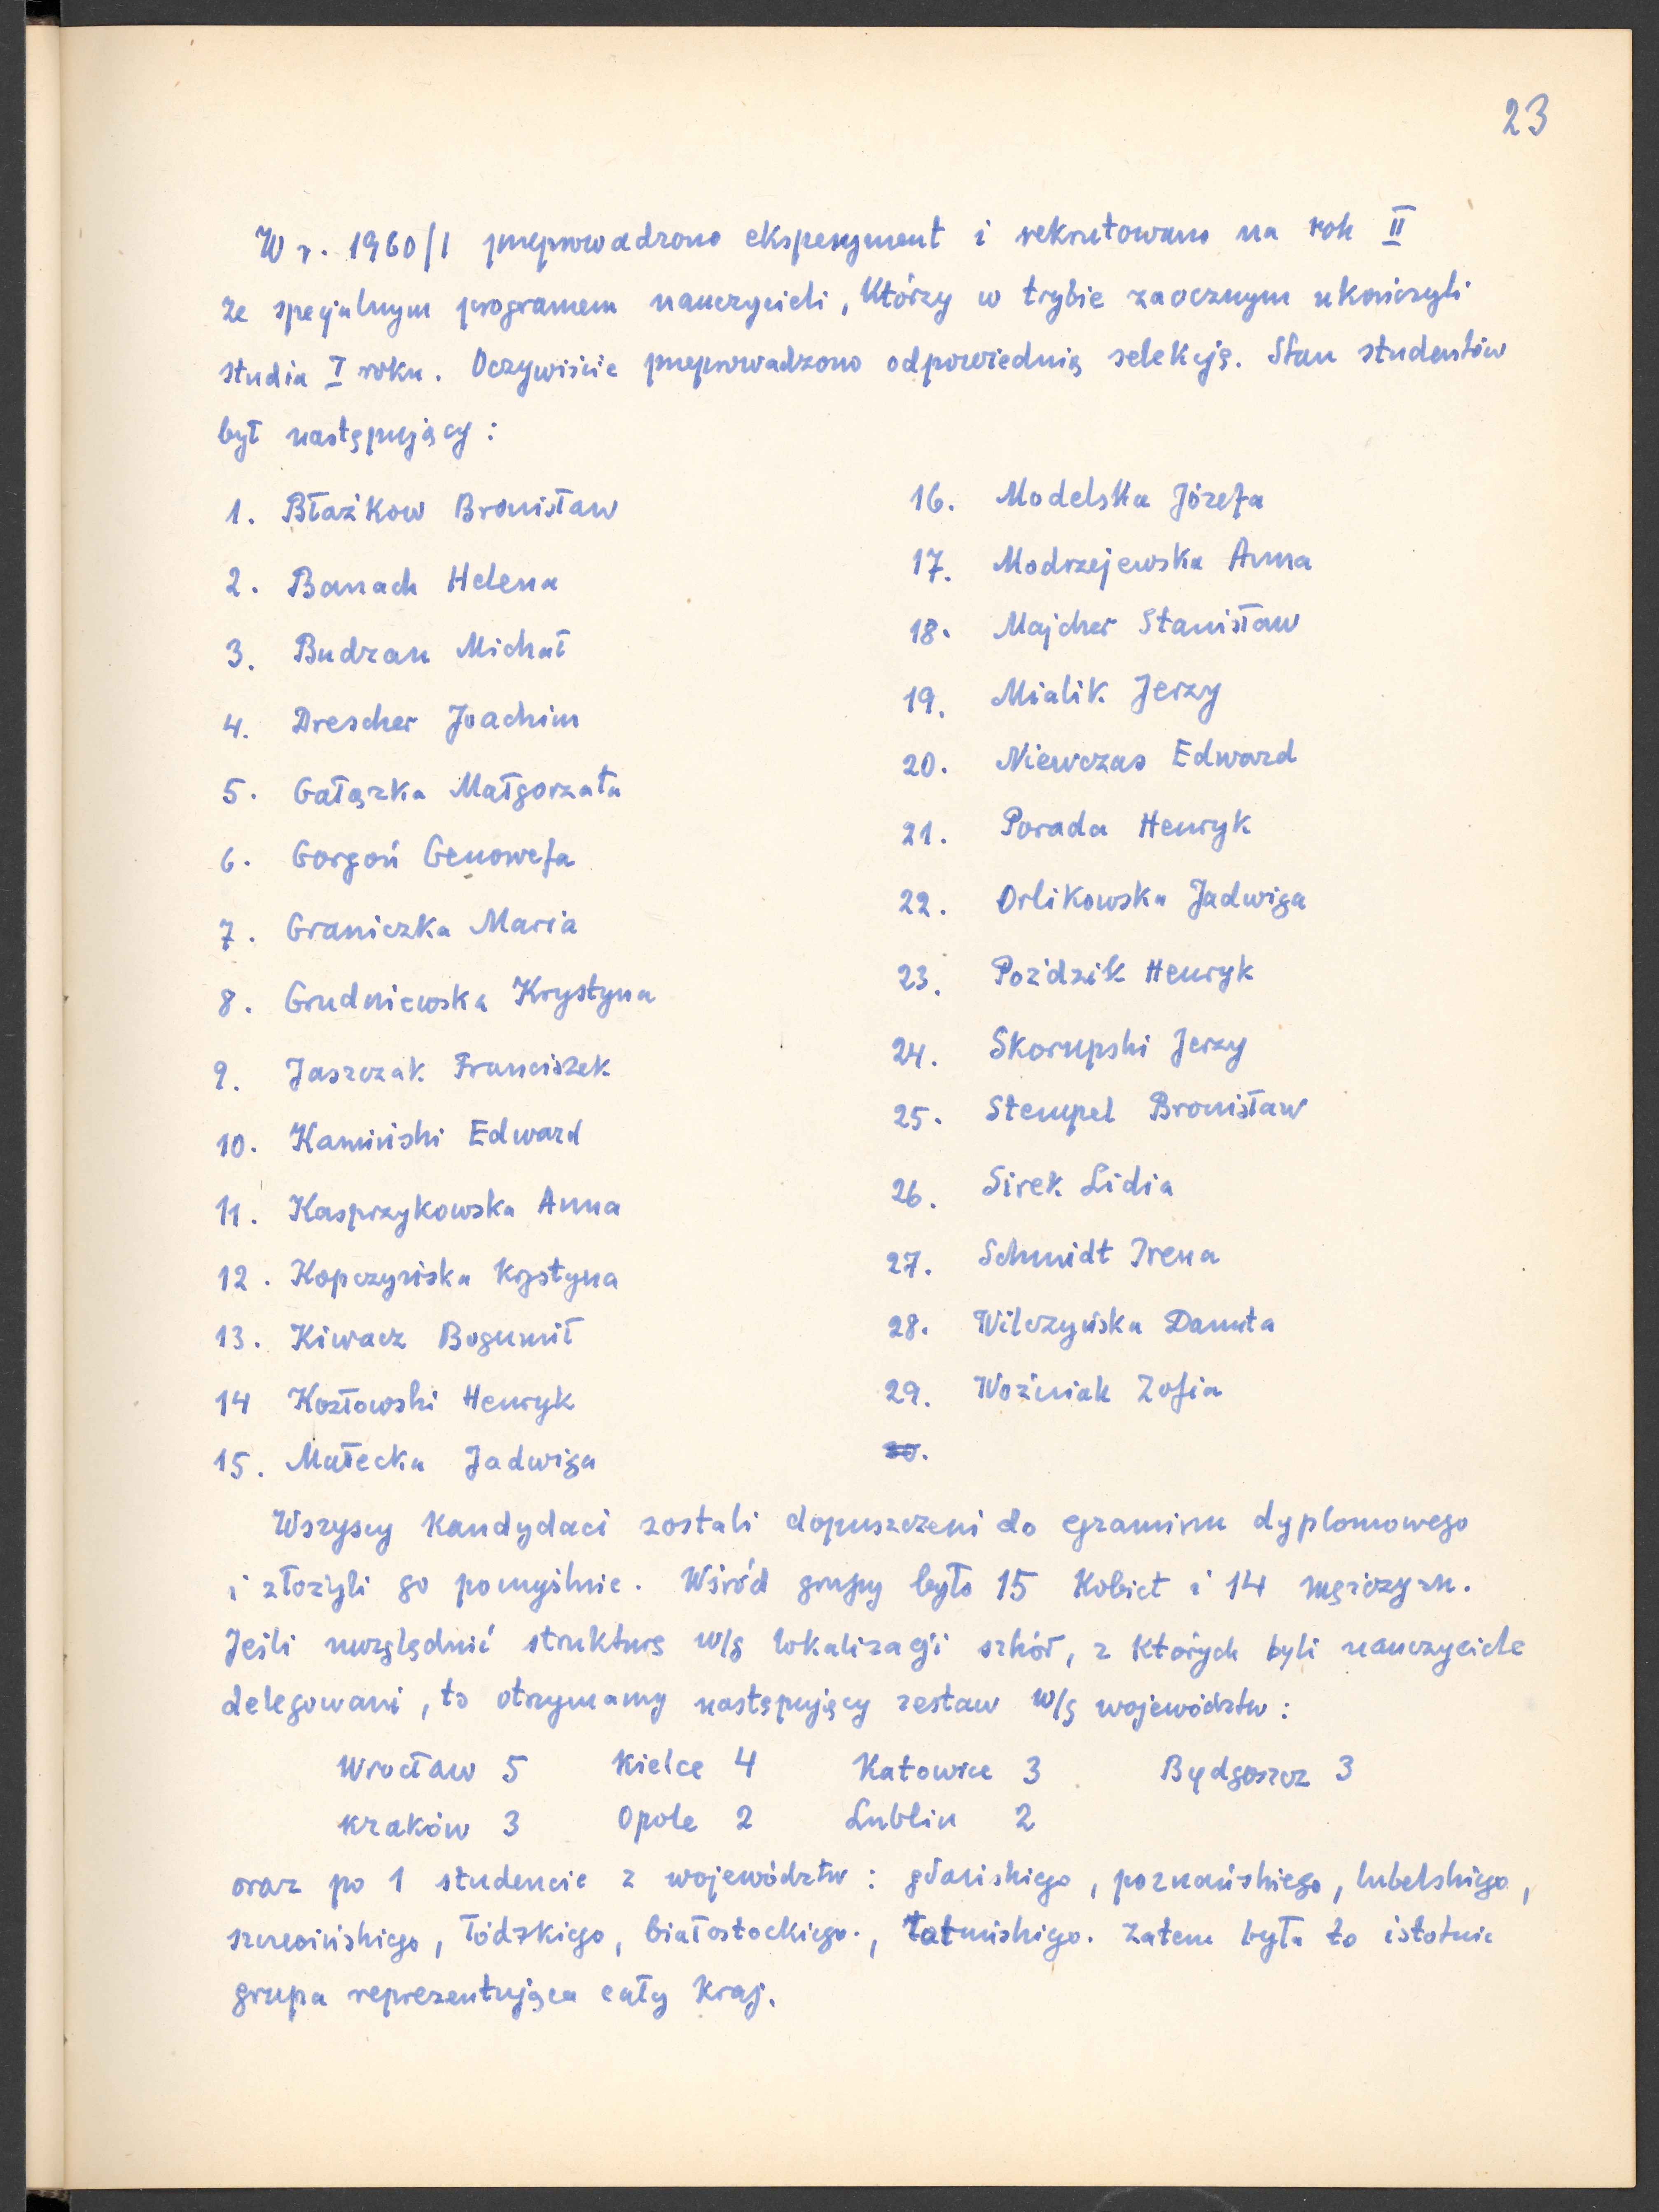 23
W r. 1960/1 przeprowadzono eksperyment i rekrutowano na rok II
ze specjalnym programem nauczycieli, którzy w trybie zaocznym ukończyli
studia I roku. Oczywiście przeprowadzono odpowiednią selekcję. Stan studentów
był następujący:
1. Błażkow Bronisław
2. Banach Helena
3. Budzan Michał
4. Drescher Joachim
5. Gałązka Małgorzata
6. Gorgoń Genowefa
7. Graniczka Maria
8. Grudniewska Krystyna
9. Jaszczak Franciszek
10. Kamiński Edward
11. Kasprzykowska Anna
12. Kopczyńska Krystyna
13. Kiwacz Bogumił
14 Kozłowski Henryk
15. Małecka Jadwiga
16. Modelska Józefa
17. Modrzejewska Anna
18. Majcher Stanisław
19. Mialik Jerzy
20. Niewczas Edward
21. Porada Henryk
22. Orlikowska Jadwiga
23. Poździk Henryk
24. Skorupski Jerzy
25. Stempel Bronisław
26. Sirek Lidia
27. Schmidt Irena
28. Wilczyńska Danuta
29. Woźniak Zofia
30.
Wszyscy kandydaci zostali dopuszczeni do egzaminu dyplomowego
i złożyli go pomyślnie. Wśród grupy było 15 kobiet i 14 mężczyzn.
Jeśli uwzględnić strukturę w/g lokalizacji szkół, z których byli nauczyciele
delegowani, to otrzymamy następujący zestaw w/g województw:
Wrocław 5 Kielce 4 Katowice 3 Bydgoszcz 3
Kraków 3 Opole 2 Lublin 2
oraz po 1 studencie z województw: gdańskiego, poznańskiego, lubelskiego,
szczecińskiego, łódzkiego, białostockiego., Zatem była to istotnie
grupa reprezentująca cały kraj.